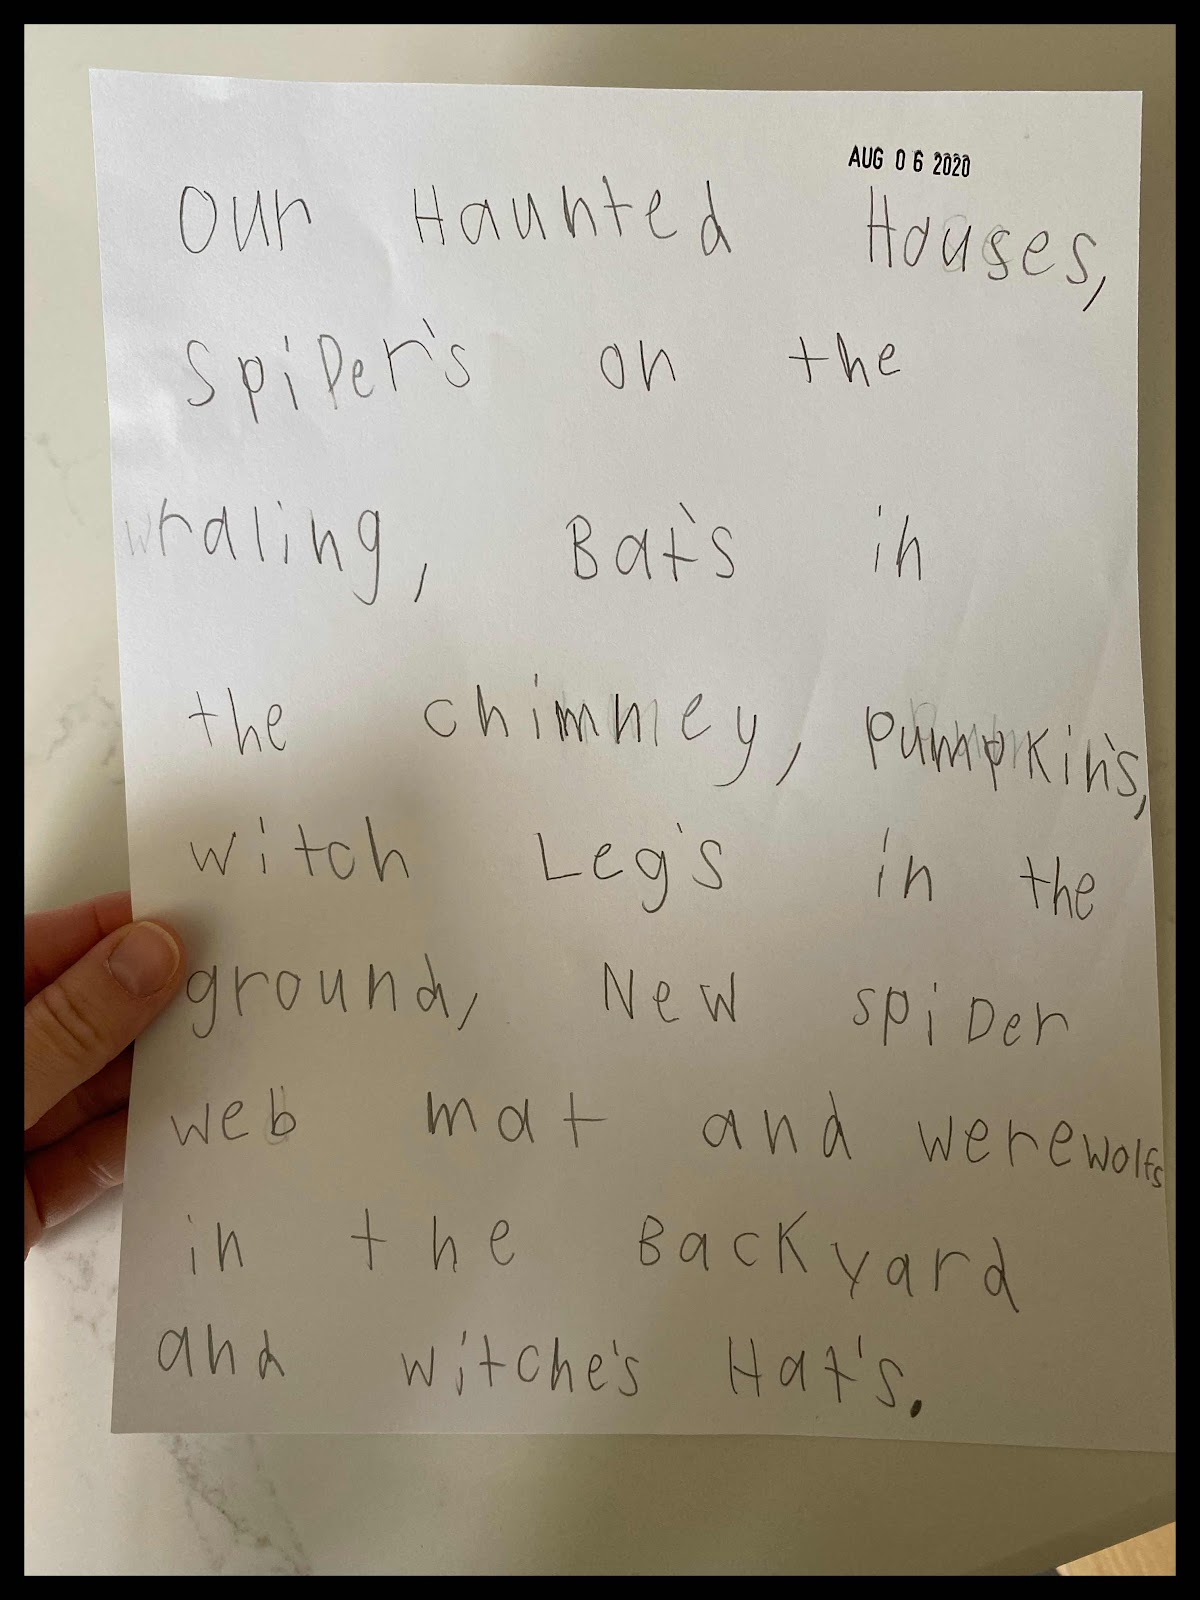 AUG 06 2020
Our Haunted Houses,
SpiDer's on the
raling, Bat's in
the chimney, pumpkin's,
witch Leg's in the
ground, New spiDer
web mat and werewolfs
in the BacKyard
and witche's Hat's.